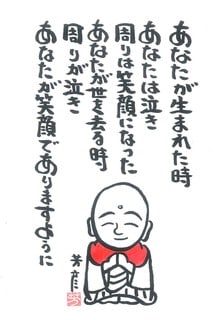 あなたが生まれた時
あなたは泣き
周りは笑顔になった
あなたが世を去る時
周りが泣き
あなたが笑顔でありますように